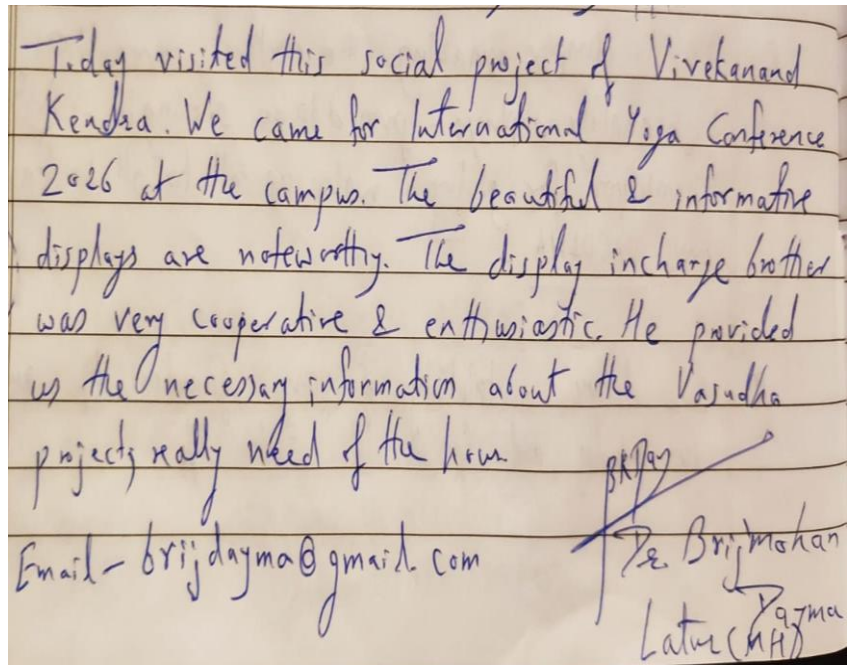 Today visited this social project of Vivekanand
Kendra. We came for International Yoga Conference
2026 at the campus. The beautiful & informative
displays are noteworthy. The display incharge brother
was very cooperative & enthusiastic. He provided
us the necessary information about the Vasudha
projects really need of the hour.
Email- brijdayma@gmail.com
Dr. Brijmohan
Dayma
Latur (MH)